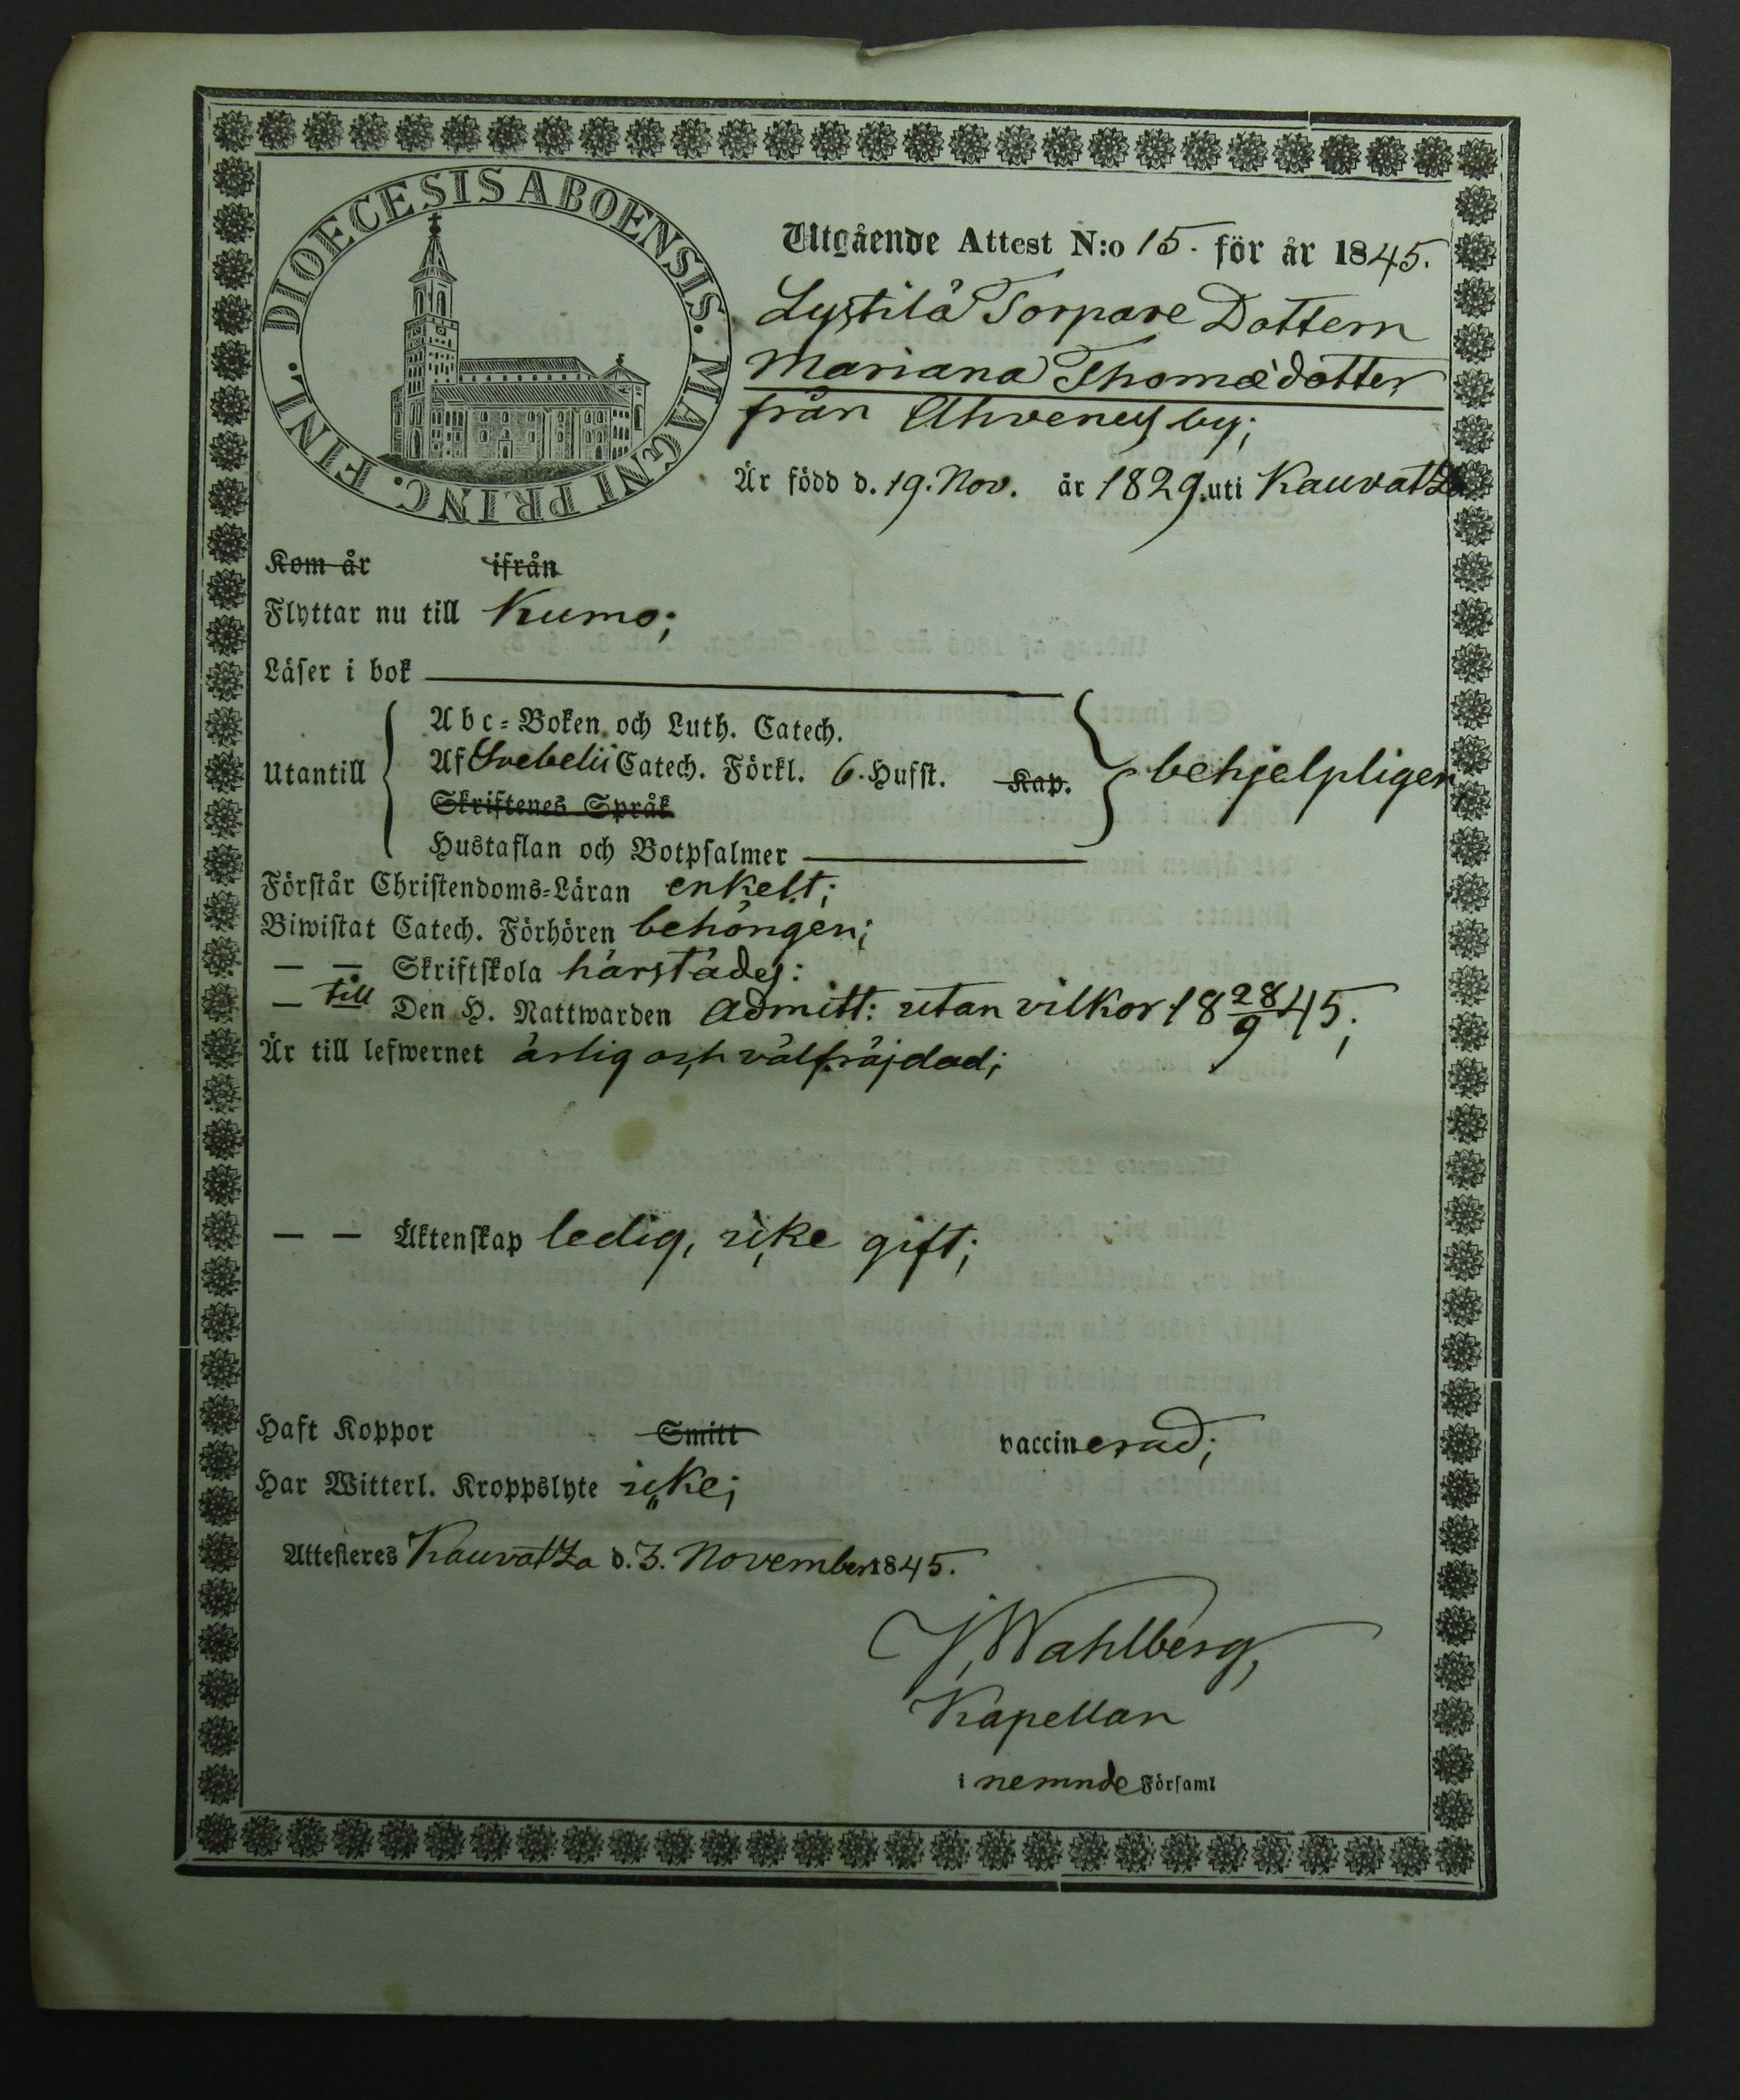 DIOECESIS ABOENSIS. MAGNI PRINC. FINL.
Utgående Attest N:o 15. för år 1845.
Lystilä Torpare Dottern
Mariana Thomædotter
från Ahvenus by;
Är född d. 19. Nov. år 1829. uti Kauvatza
Kom år ifrån
Flyttar nu till Kumo;
Läser i bok
Utantill
Abc-Boken och Luth. Catech.
Af Svebelii Catech. Förkl. 6. Hufst. Kap.
behjelpligen,
Skriftenes Språk
Hustaflan och Botpsalmer
Förstår Christendoms-Läran enkelt;
Biwistat Catech. Förhören behörigen;
— — Skriftskola härstädes:
— till Den H. Nattwarden admitt: utan vilkor 18 28/9 45;
Är till lefwernet ärlig och välfräjdad;
— — Äktenskap ledig, icke gift;
Haft Koppor Smitt vaccinerad;
Har Witterl. Kroppslyte icke;
Attesteres Kauvatza d. 3. November 1845.
J. Wahlberg,
Kapellan
i nemnde Församl